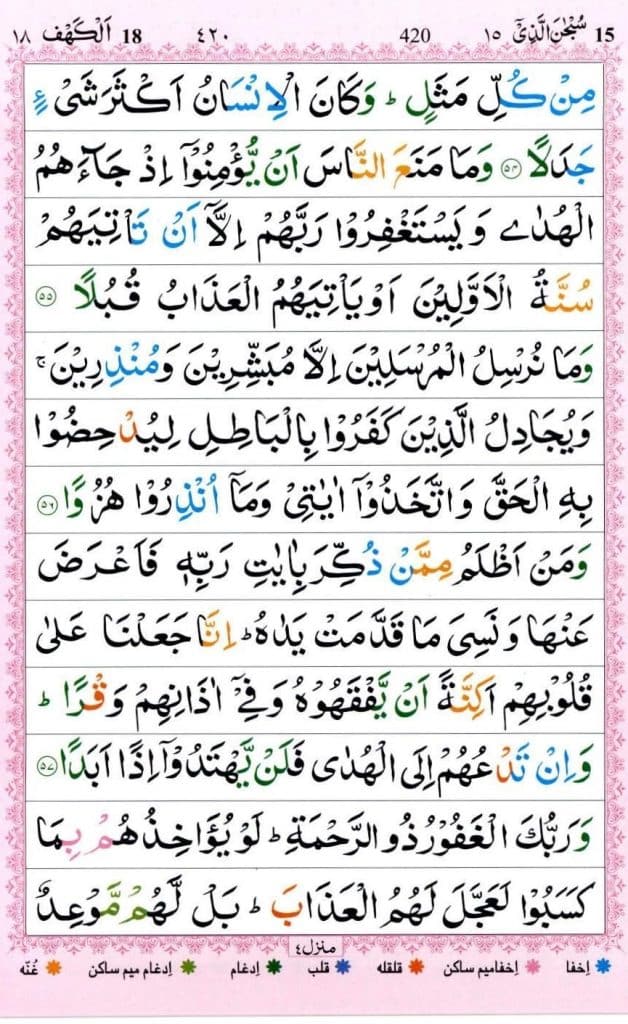 15 سُبْحٰنَ الَّذِیْۤ ١٥ 420 ٤٢٠ 18 اَلْكَهْف ١٨
مِنْ كُلِّ مَثَلٍ ؕ وَكَانَ الْاِنْسَانُ اَكْثَرَ شَیْءٍ
جَدَلًا ﴿۵۴﴾ وَمَا مَنَعَ النَّاسَ اَنْ یُّؤْمِنُوْۤا اِذْ جَآءَهُمُ
الْهُدٰی وَیَسْتَغْفِرُوْا رَبَّهُمْ اِلَّاۤ اَنْ تَاْتِیَهُمْ
سُنَّةُ الْاَوَّلِیْنَ اَوْ یَاْتِیَهُمُ الْعَذَابُ قُبُلًا ﴿۵۵﴾
وَمَا نُرْسِلُ الْمُرْسَلِیْنَ اِلَّا مُبَشِّرِیْنَ وَمُنْذِرِیْنَ ۚ
وَیُجَادِلُ الَّذِیْنَ كَفَرُوْا بِالْبَاطِلِ لِیُدْحِضُوْا
بِهِ الْحَقَّ وَاتَّخَذُوْۤا اٰیٰتِیْ وَمَاۤ اُنْذِرُوْا هُزُوًا ﴿۵۶﴾
وَمَنْ اَظْلَمُ مِمَّنْ ذُكِّرَ بِاٰیٰتِ رَبِّهٖ فَاَعْرَضَ
عَنْهَا وَنَسِیَ مَا قَدَّمَتْ یَدٰهُ ؕ اِنَّا جَعَلْنَا عَلٰی
قُلُوْبِهِمْ اَكِنَّةً اَنْ یَّفْقَهُوْهُ وَفِیْۤ اٰذَانِهِمْ وَقْرًا ؕ
وَاِنْ تَدْعُهُمْ اِلَی الْهُدٰی فَلَنْ یَّهْتَدُوْۤا اِذًا اَبَدًا ﴿۵۷﴾
وَرَبُّكَ الْغَفُوْرُ ذُو الرَّحْمَةِ ؕ لَوْ یُؤَاخِذُهُمْ بِمَا
كَسَبُوْا لَعَجَّلَ لَهُمُ الْعَذَابَ ؕ بَلْ لَّهُمْ مَّوْعِدٌ
منزل٤
اِخفا اِخفامیم ساكن قلقله قلب اِدغام اِدغام میم ساكن غُنّه